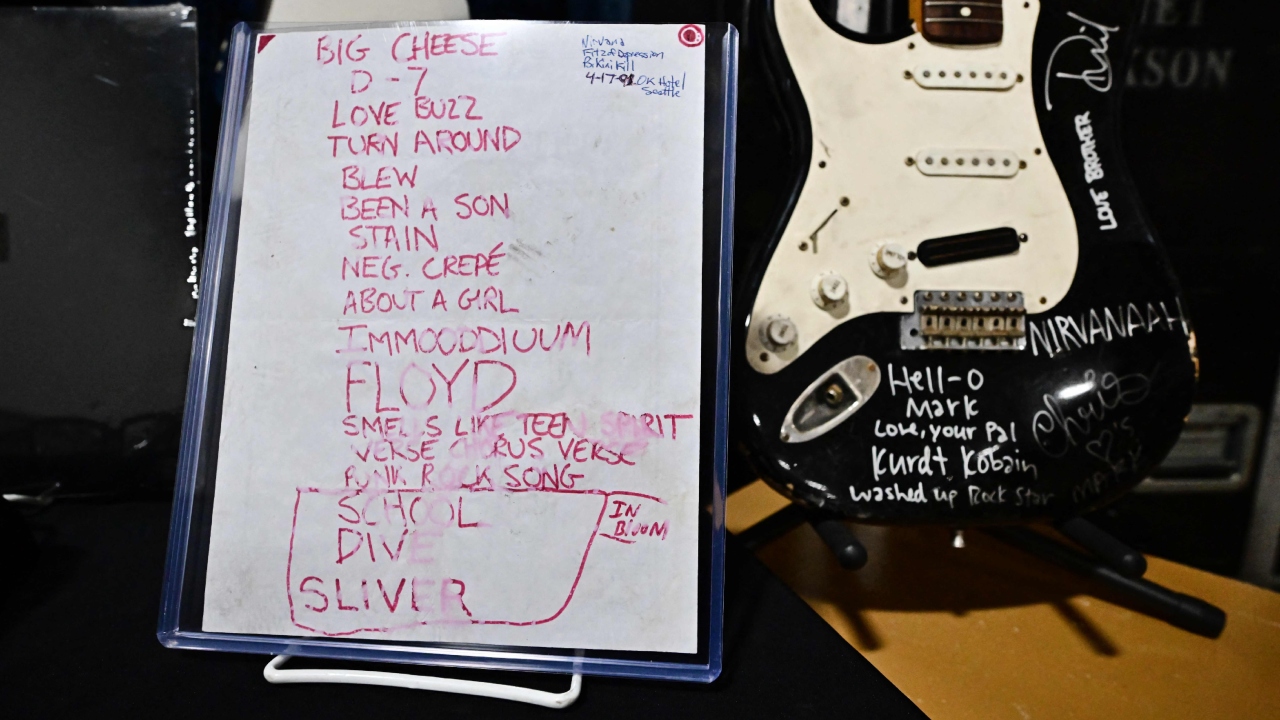 BIG CHEESE
D-7
LOVE BUZZ
TURN AROUND
BLEW
BEEN A SON
STAIN
NEG. CREPÉ
ABOUT A GIRL
IMMOODDIUUM
FLOYD
SMELLS LIKE TEEN SPIRIT
VERSE CHORUS VERSE
PUNK ROCK SONG
SCHOOL
DIVE
SLIVER
IN
BLOOM
Nirvana
Fitz of Depression
Bikini Kill
4-17-91 OK Hotel
Seattle
LOVE BROTHER
NIRVANAAH
Hell-O
Mark
Love, your Pal
Kurdt Kobain
washed up Rock Star
Chris
♡'s
MARK
KSON